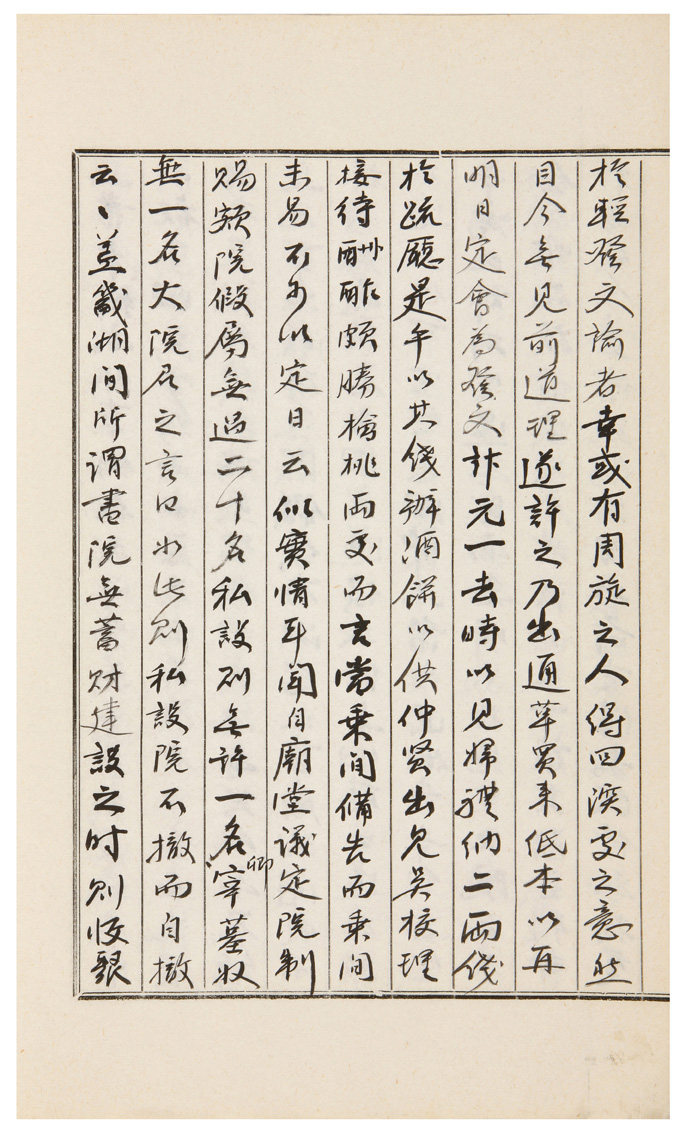 於輕發文諭者幸或有周旋之人得回深處之意然
目今無見前道理遂許之乃出通草買来低本以再
明日定會為發文計元一去時以見婦禮納二兩錢
於疏廳是午以其錢辦酒餅以供仲賢出見吳校理
接待酬酢頗勝檜桃兩處而言當乗間備告而乗間
未易不可以定日云似實情耳聞自廟堂議定院制
賜額院假屬無過二十名私設則無許一名宰卿墓奴
無一名大院君之言曰如此則私設院不撤而自撤
云〻盖畿湖間所謂書院無蓄財建設之时則收斂